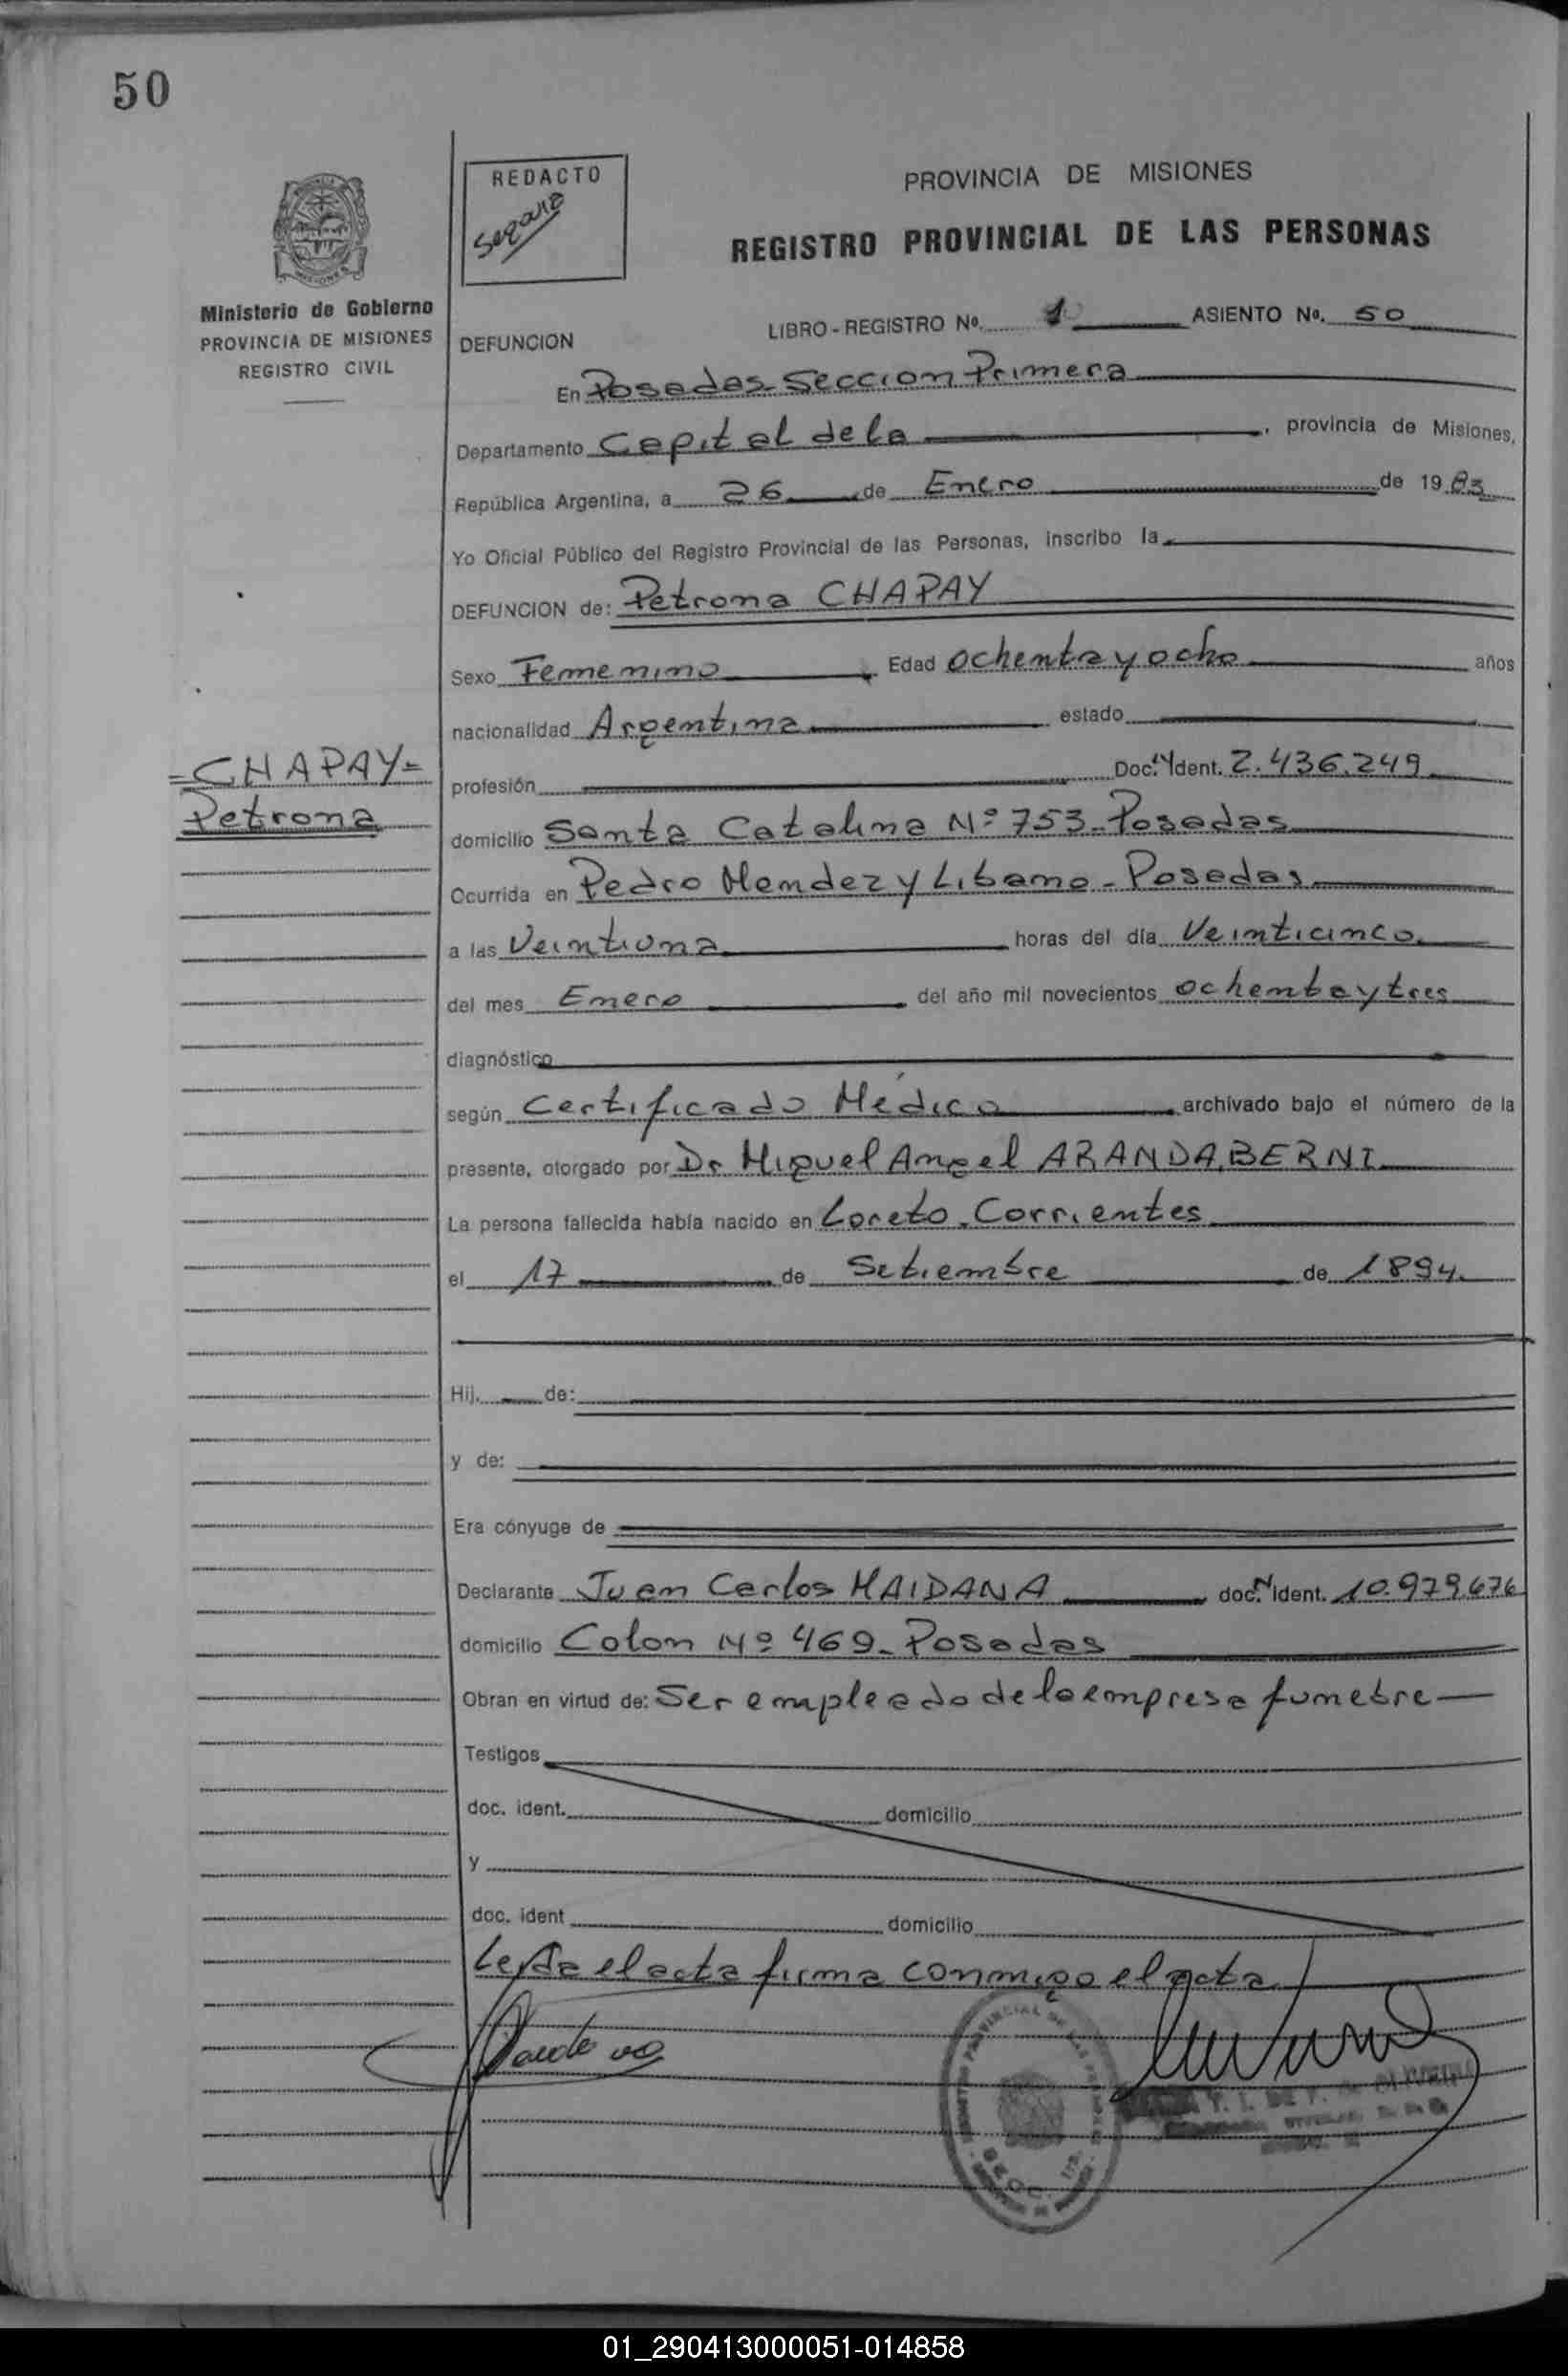 50
REDACTO
PROVINCIA DE MISIONES
REGISTRO PROVINCIAL DE LAS PERSONAS
Ministerio de Gobierno
PROVINCIA DE MISIONES
REGISTRO CIVIL
LIBRO - REGISTRO Nº. 1 ASIENTO Nº. 50
DEFUNCION
En Posadas-Seccion Primera
Departamento Capital de la , provincia de Misiones,
República Argentina, a 26 de Enero de 1983
Yo Oficial Público del Registro Provincial de las Personas, inscribo la
DEFUNCION de: Petrona CHAPAY
Sexo Femenino Edad Ochenta y ocho años
nacionalidad Argentina estado
=CHAPAY=
Petrona
profesión Doc. Ident. 2.436.249
domicilio Santa Catalina Nº 753-Posadas
Ocurrida en Pedro Mendez y Libano-Posadas
a las Veintiuna horas del día Veinticinco
del mes Enero del año mil novecientos ochenta y tres
diagnóstico
según Certificado Médico archivado bajo el número de la
presente, otorgado por Dr Miguel Angel ARANDA BERNI
La persona fallecida había nacido en Loreto. Corrientes
el 17 de Setiembre de 1894.
Hij. de:
y de:
Era cónyuge de
Declarante Juan Carlos MAIDANA doc. ident. 10.979.676
domicilio Colon Nº 469-Posadas
Obran en virtud de: Ser empleado de la empresa funebre
Testigos
doc. ident. domicilio
y
doc. ident domicilio
Leída el acta firma conmigo el acta
01_290413000051-014858